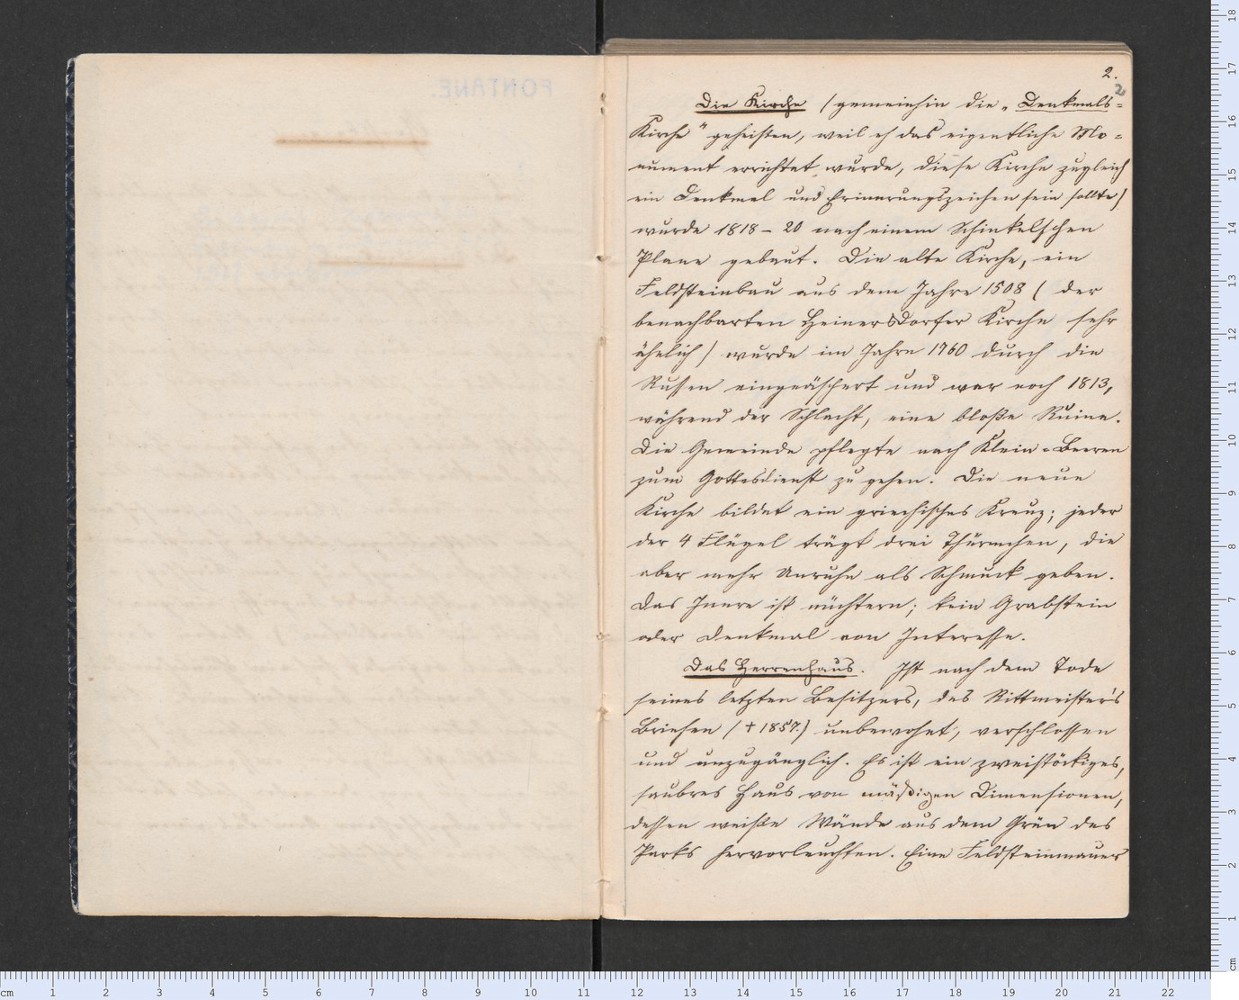 FONTANE.
2.
2
Die Kirche (gemeinhin die „Denkmals-
Kirche“ geheißen, weil eh das eigentliche Mo-
nument errichtet wurde, diese Kirche zugleich
ein Denkmal und Erinnerungszeichen sein sollte)
wurde 1818–20 nach einem Schinkelschen
Plane gebaut. Die alte Kirche, ein
Feldsteinbau aus dem Jahre 1508 (der
benachbarten Heinersdorfer Kirche sehr
ähnlich) wurde im Jahre 1760 durch die
Russen eingeäschert und war noch 1813,
während der Schlacht, eine bloße Ruine.
Die Gemeinde pflegte nach Klein-Beeren
zum Gottesdienst zu gehen. Die neue
Kirche bildet ein griechisches Kreuz; jeder
der 4 Flügel trägt drei Thürmchen, die
aber mehr Unruhe als Schmuck geben.
Das Innre ist nüchtern; kein Grabstein
oder Denkmal von Interesse.
Das Herrenhaus. Ist nach dem Tode
seines letzten Besitzers, des Rittmeister's
Briesen († 1857.) unbewohnt, verschlossen
und unzugänglich. Es ist ein zweistöckiges,
saubres Haus von mäßigen Dimensionen,
dessen weiße Wände aus dem Grün des
Parks hervorleuchten. Eine Feldsteinmauer